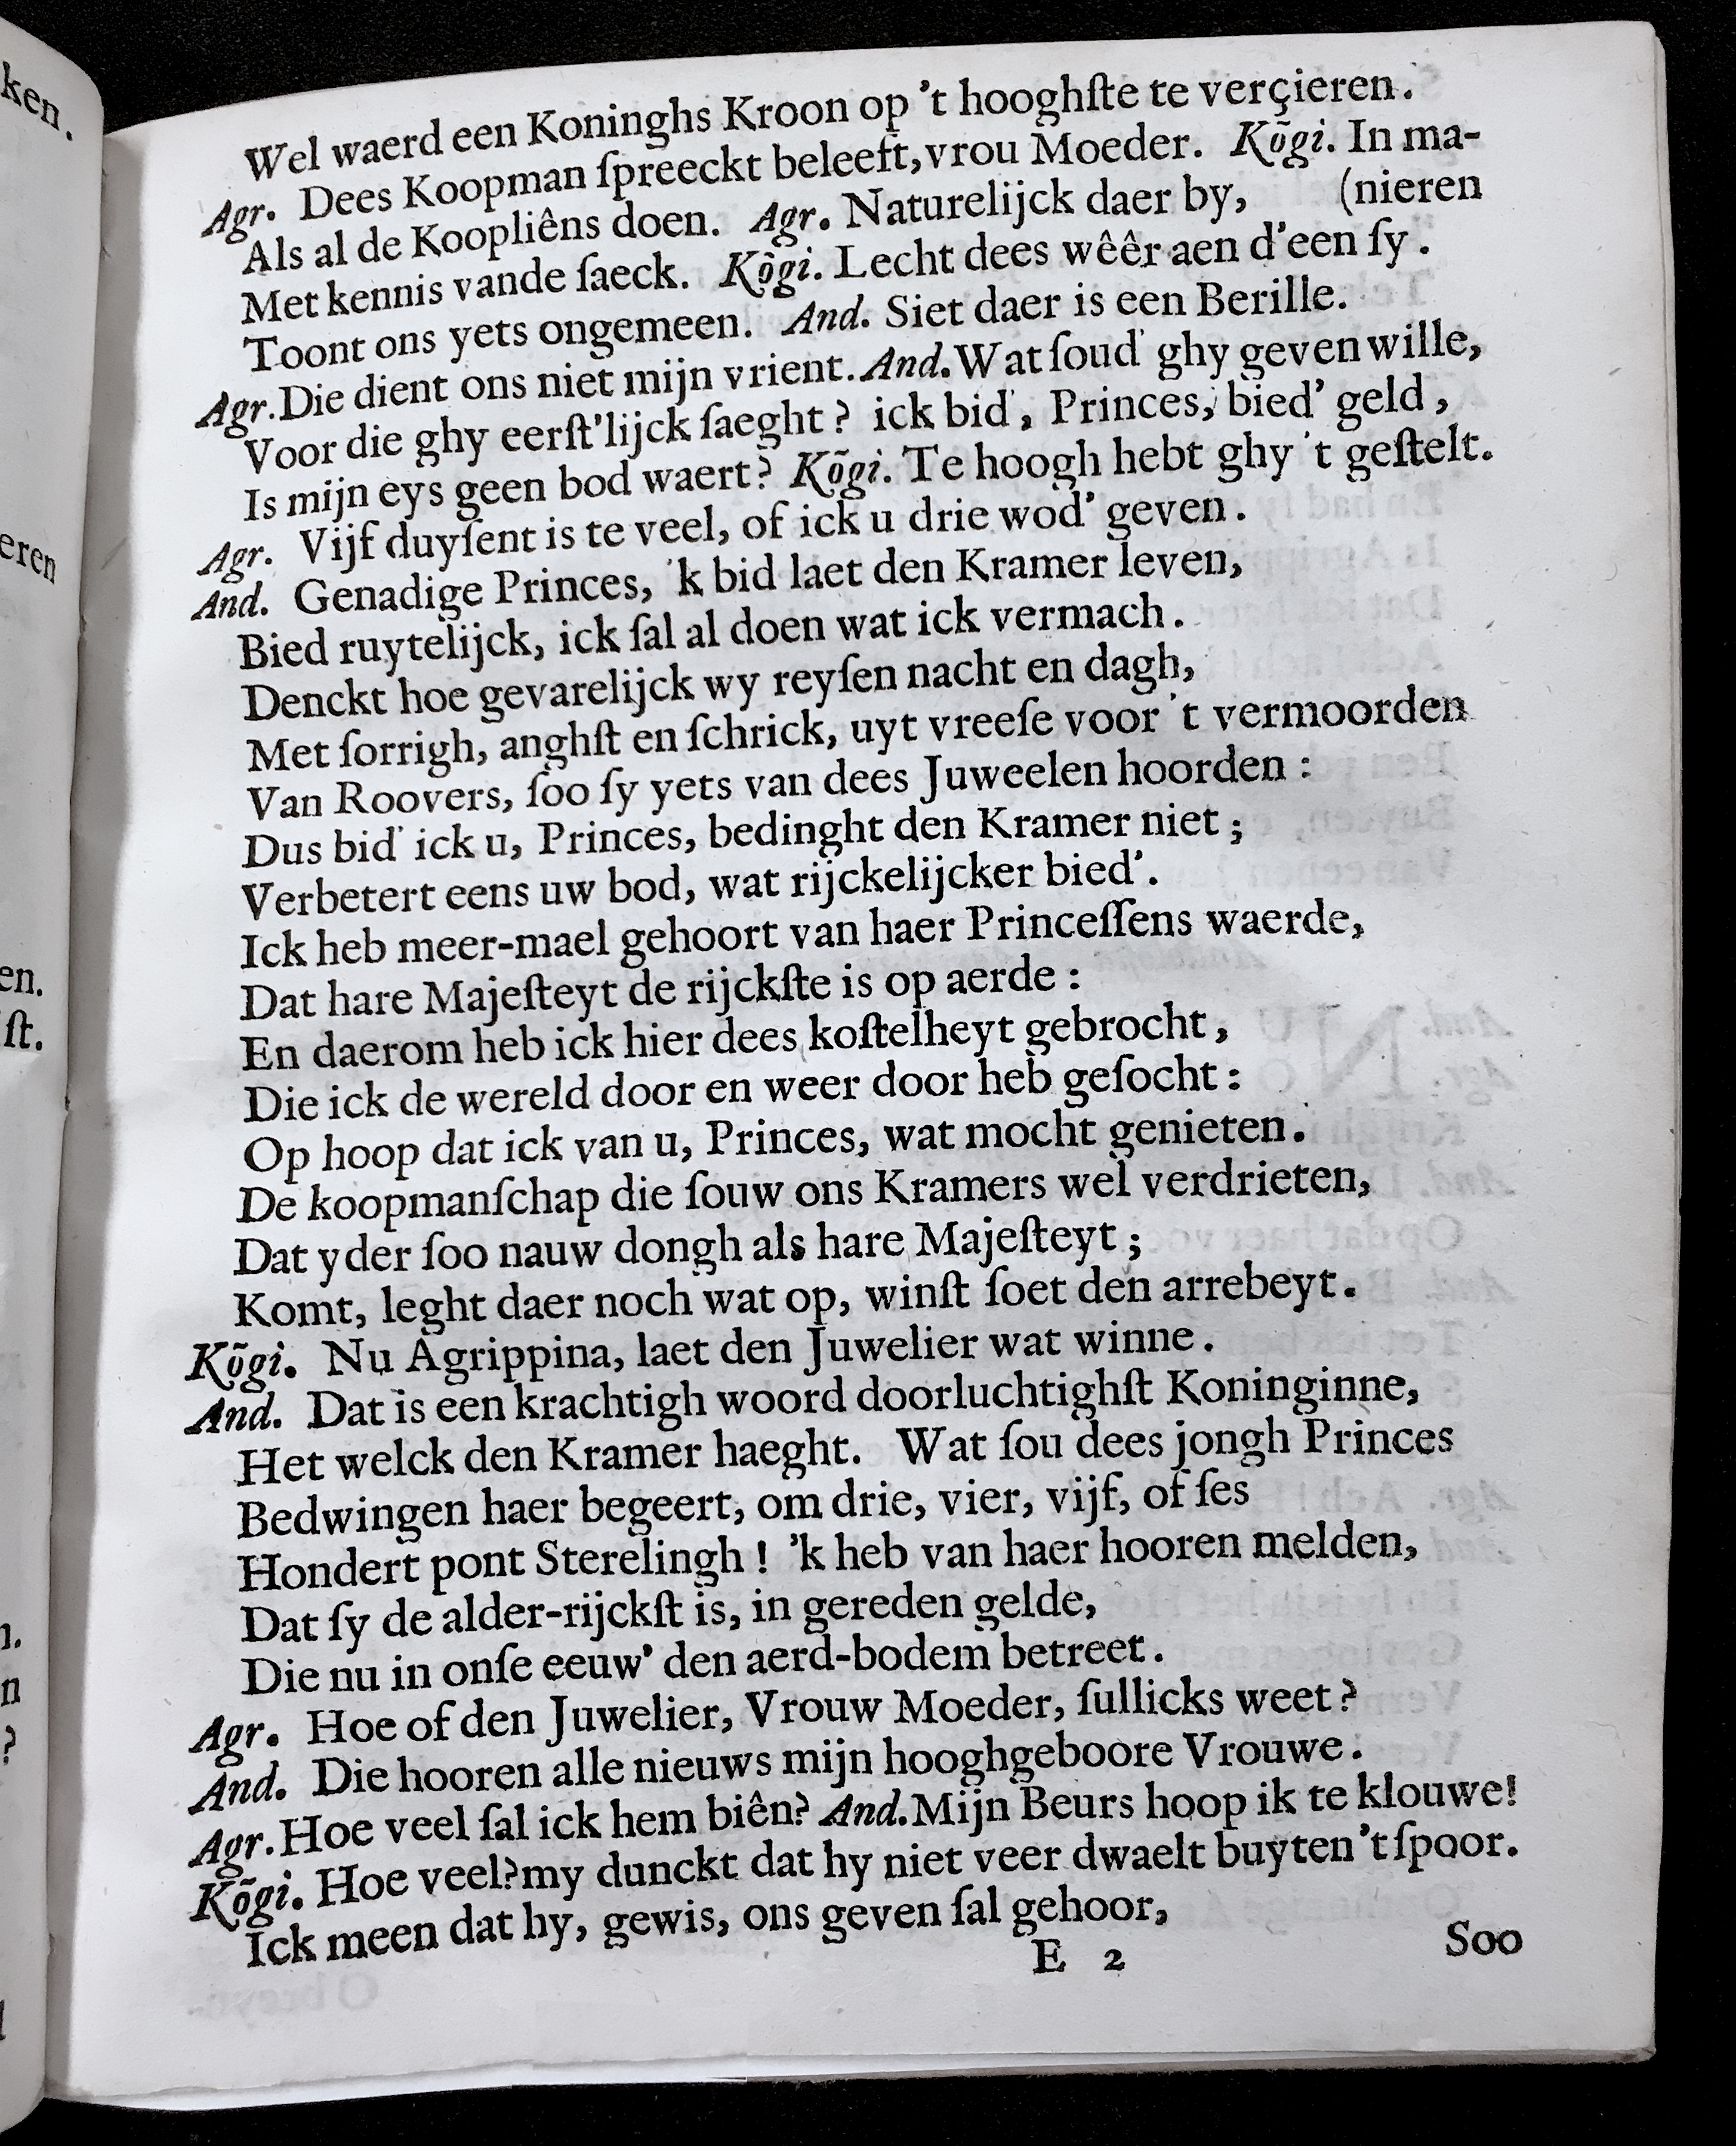 Wel waerd een Koninghs Kroon op 't hooghſte te verçieren.
Agr. Dees Koopman ſpreeckt beleeft, vrou Moeder. Kõgi. In ma-
Als al de Koopliêns doen. Agr. Naturelijck daer by, (nieren
Met kennis vande ſaeck. Kõgi. Lecht dees wêêr aen d'een ſy.
Toont ons yets ongemeen. And. Siet daer is een Berille.
Agr. Die dient ons niet mijn vrient. And. Wat ſoud' ghy geven wille,
Voor die ghy eerſt'lijck ſaeght? ick bid', Princes, bied' geld,
Is mijn eys geen bod waert? Kõgi. Te hoogh hebt ghy 't geſtelt.
Agr. Vijf duyſent is te veel, of ick u drie wod' geven.
And. Genadige Princes, 'k bid laet den Kramer leven,
Bied ruytelijck, ick ſal al doen wat ick vermach.
Denckt hoe gevarelijck wy reyſen nacht en dagh,
Met ſorrigh, anghſt en ſchrick, uyt vreeſe voor 't vermoorden
Van Roovers, ſoo ſy yets van dees Juweelen hoorden:
Dus bid' ick u, Princes, bedinght den Kramer niet;
Verbetert eens uw bod, wat rijckelijcker bied'.
Ick heb meer-mael gehoort van haer Princeſſens waerde,
Dat hare Majeſteyt de rijckſte is op aerde:
En daerom heb ick hier dees koſtelheyt gebrocht,
Die ick de wereld door en weer door heb geſocht:
Op hoop dat ick van u, Princes, wat mocht genieten.
De koopmanſchap die ſouw ons Kramers wel verdrieten,
Dat yder ſoo nauw dongh als hare Majeſteyt;
Komt, leght daer noch wat op, winſt ſoet den arrebeyt.
Kõgi. Nu Agrippina, laet den Juwelier wat winne.
And. Dat is een krachtigh woord doorluchtighſt Koninginne,
Het welck den Kramer haeght. Wat ſou dees jongh Princes
Bedwingen haer begeert, om drie, vier, vijf, of ſes
Hondert pont Sterelingh! 'k heb van haer hooren melden,
Dat ſy de alder-rijckſt is, in gereden gelde,
Die nu in onſe eeuw' den aerd-bodem betreet.
Agr. Hoe of den Juwelier, Vrouw Moeder, ſullicks weet?
And. Die hooren alle nieuws mijn hooghgeboore Vrouwe.
Agr. Hoe veel ſal ick hem biên? And. Mijn Beurs hoop ik te klouwe!
Kõgi. Hoe veel? my dunckt dat hy niet veer dwaelt buyten 't ſpoor.
Ick meen dat hy, gewis, ons geven ſal gehoor,
E 2 Soo
ken.
eren
en.
ſt.
n
?